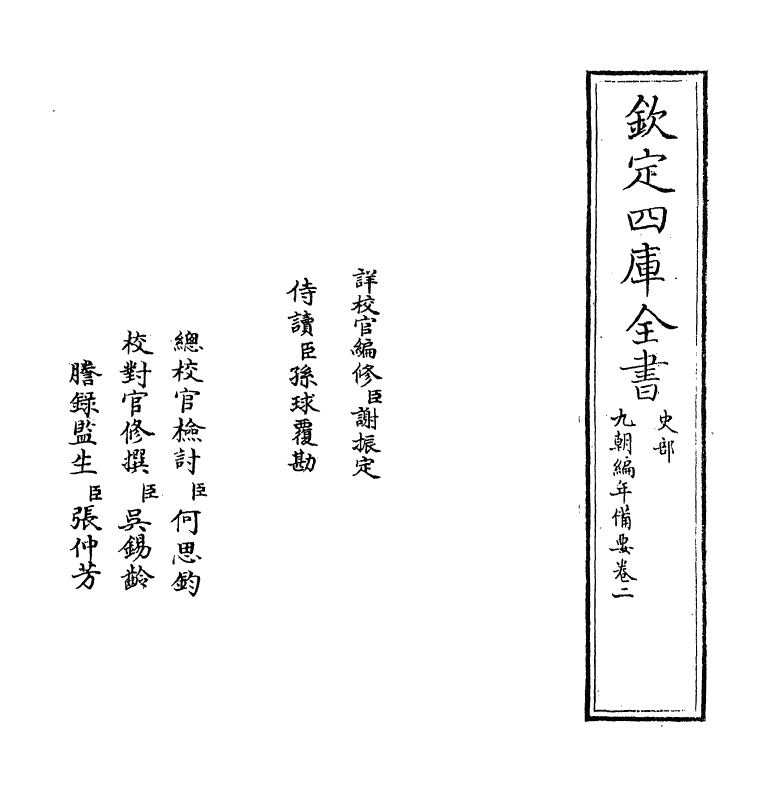 欽定四庫全書
史部
九朝編年備要卷二
詳校官編修臣謝振定
侍讀臣孫球覆勘
總校官檢討臣何思鈞
校對官修撰臣吳錫齡
謄錄監生臣張仲芳